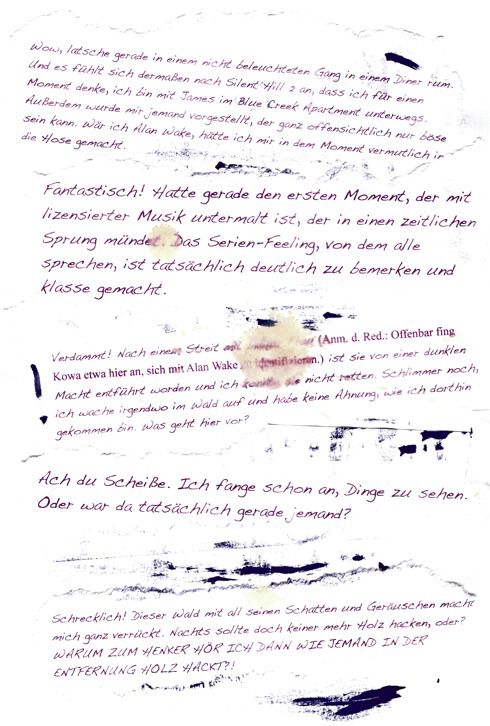 Wow, latsche gerade in einem nicht beleuchteten Gang in einem Diner rum.
Und es fühlt sich dermaßen nach Silent Hill 2 an, dass ich für einen
Moment denke, ich bin mit James im Blue Creek Apartment unterwegs.
Außerdem wurde mir jemand vorgestellt, der ganz offensichtlich nur böse
sein kann. Wär ich Alan Wake, hätte ich mir in dem Moment vermutlich in
die Hose gemacht.
Fantastisch! Hatte gerade den ersten Moment, der mit
lizensierter Musik untermalt ist, der in einen zeitlichen
Sprung mündet. Das Serien-Feeling, von dem alle
sprechen, ist tatsächlich deutlich zu bemerken und
klasse gemacht.
Verdammt! Nach einem Streit mit (Anm. d. Red.: Offenbar fing
Kowa etwa hier an, sich mit Alan Wake zu identifizieren.) ist sie von einer dunklen
Macht entführt worden und ich konnte sie nicht retten. Schlimmer noch,
ich wache irgendwo im Wald auf und habe keine Ahnung, wie ich dorthin
gekommen bin. Was geht hier vor?
Ach du Scheiße. Ich fange schon an, Dinge zu sehen.
Oder war da tatsächlich gerade jemand?
Schrecklich! Dieser Wald mit all seinen Schatten und Geräuschen macht
mich ganz verrückt. Nachts sollte doch keiner mehr Holz hacken, oder?
WARUM ZUM HENKER HÖR ICH DANN WIE JEMAND IN DER
ENTFERNUNG HOLZ HACKT?!